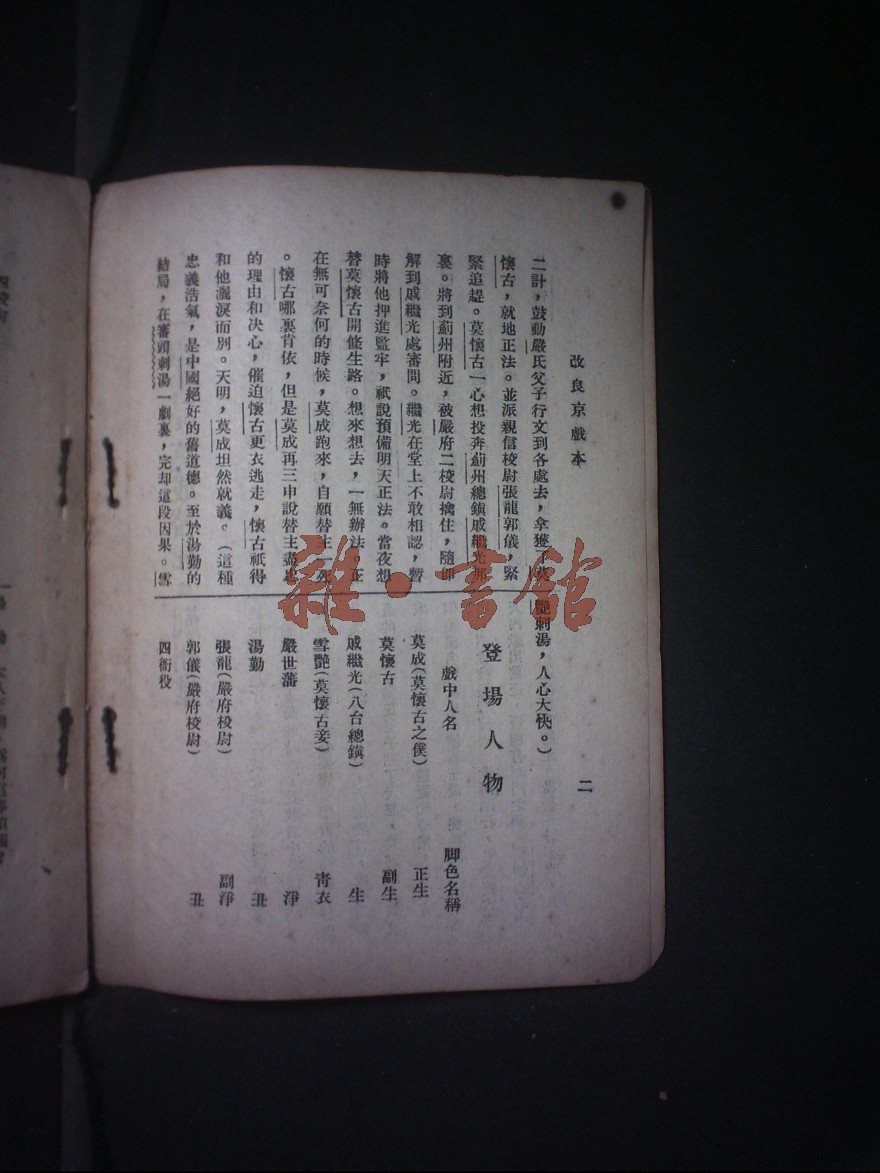 改良京戲本
二
二計，鼓動嚴氏父子行文到各處去，拿獲了莫
懷古，就地正法。並派親信校尉張龍郭儀，緊
緊追趕。莫懷古一心想投奔薊州總鎮戚繼光那
裏。將到薊州附近，被嚴府二校尉擒住，隨即
解到戚繼光處審問。繼光在堂上不敢相認，暫
時將他押進監牢，祇說預備明天正法。當夜想
替莫懷古開條生路。想來想去，一無辦法。正
在無可奈何的時候，莫成跑來，自願替主一死
。懷古哪裏肯依，但是莫成再三申說替主盡忠
的理由和决心，催迫懷古更衣逃走，懷古祇得
和他灑淚而別。天明，莫成坦然就義。（這種
忠義浩氣，是中國絕好的舊道德。至於湯勤的
結局，在審頭刺湯一劇裏，完却這段因果。雪
艷刺湯，人心大快。）
登場人物
戲中人名 脚色名稱
莫成（莫懷古之僕） 正生
莫懷古 副生
戚繼光（八台總鎮） 生
雪艷（莫懷古妾） 青衣
嚴世藩 淨
湯勤 丑
張龍（嚴府校尉） 副淨
郭儀（嚴府校尉） 丑
四衙役
雜·書館